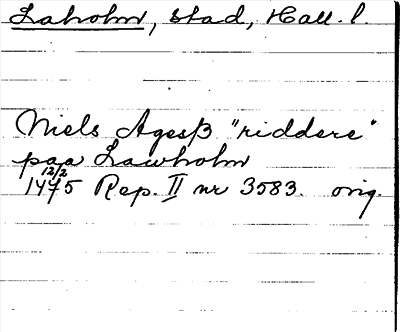 Laholm, stad, Hall. l.
Niels Agesß "riddere"
paa Lawholm
12/2
1475 Rep. II nr 3583. orig.